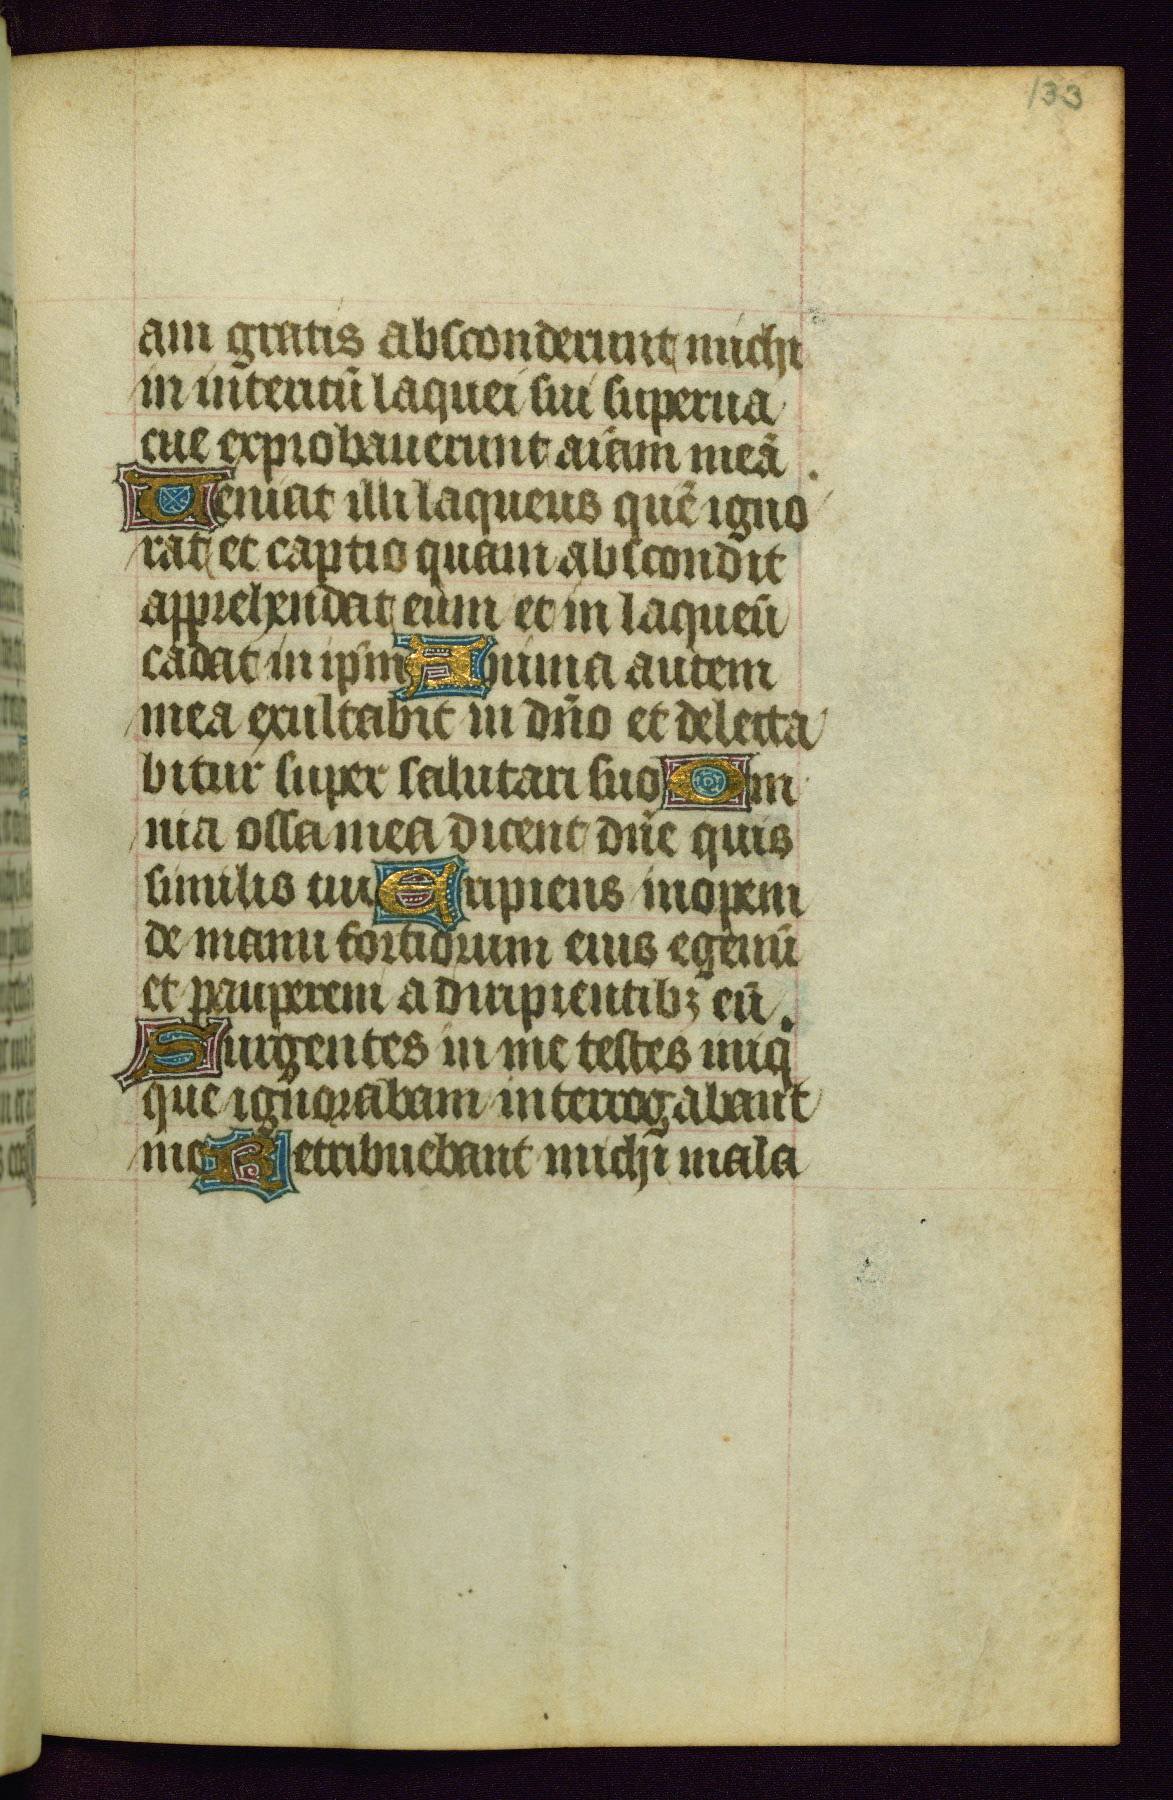 133
am gratis absconderunt michi
in interitū laquei sui superua
cue exprobauerunt aīam meā .
Ueniat illi laqueus quē igno
rat et captio quam abscondit
apprehendat eum et in laqueū
cadat in ip̄m Anima autem
mea exultabit in dn̄o et delecta
bitur super salutari suo Om
nia ossa mea dicent dn̄e quis
similis tui Eripiens inopem
de manu fortiorum eius egenū
et pauperem a diripientibꝫ eū .
Surgentes in me testes iniq̄
que ignorabam interrogabant
me Retribuebant michi mala